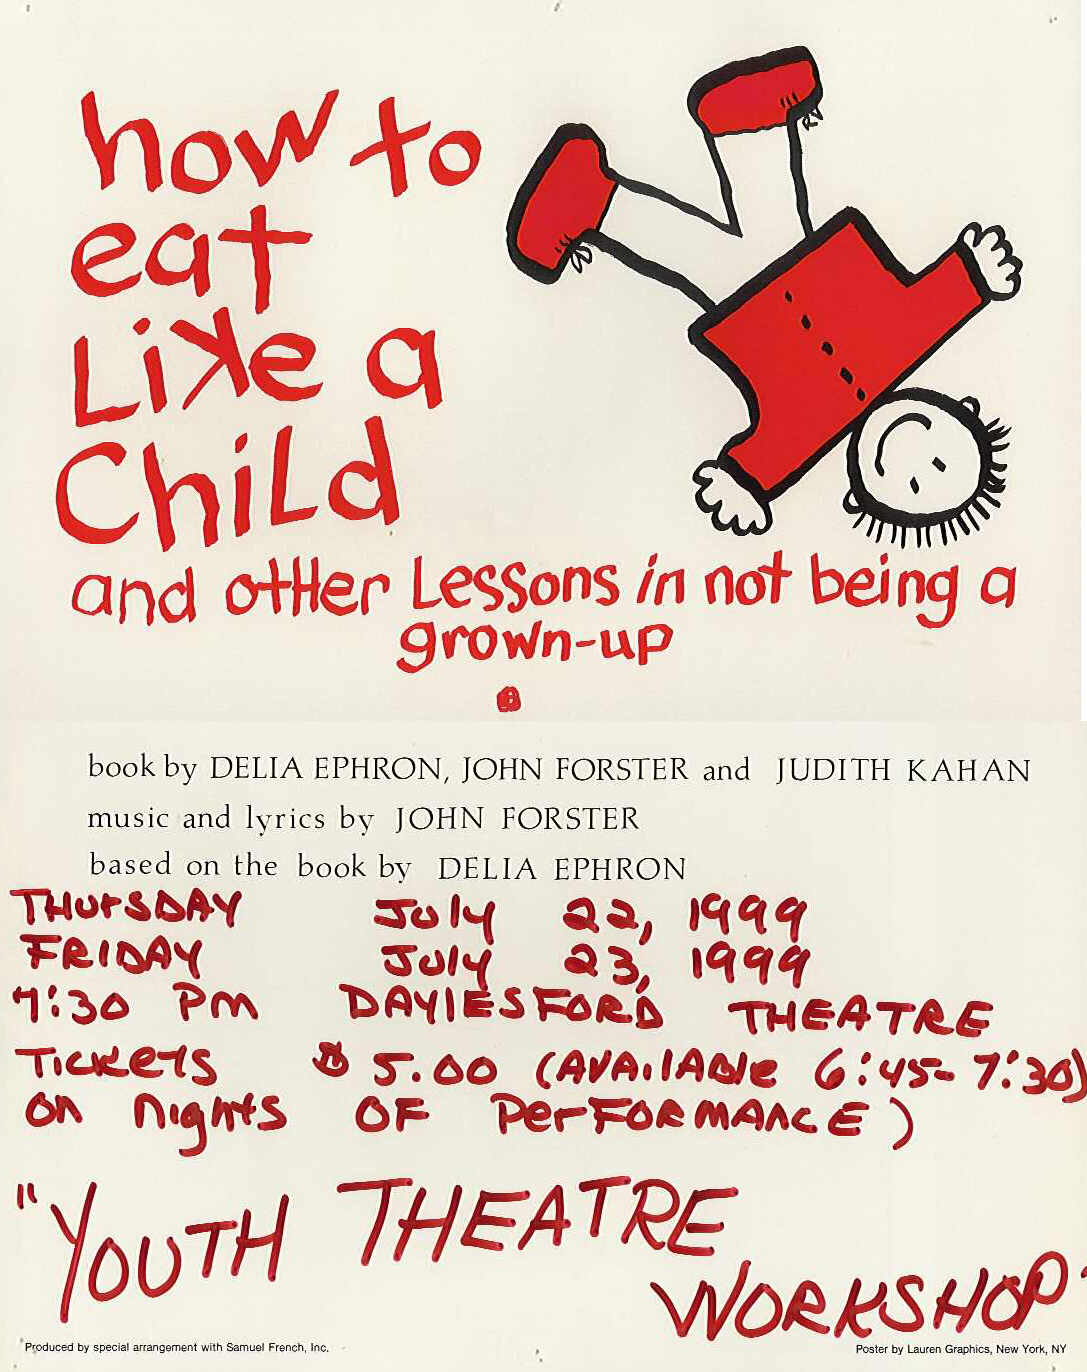 how to
eat
Like a
Child
and other Lessons in not being a
grown-up
book by DELIA EPHRON, JOHN FORSTER and JUDITH KAHAN
music and lyrics by JOHN FORSTER
based on the book by DELIA EPHRON
THURSDAY July 22, 1999
FRIDAY July 23, 1999
7:30 PM DAYLESFORD THEATRE
TICKETS $5.00 (AVAILABLE 6:45-7:30)
ON NIGHTS OF PERFORMANCE)
"YOUTH THEATRE
WORKSHOP"
Produced by special arrangement with Samuel French, Inc.
Poster by Lauren Graphics, New York, NY